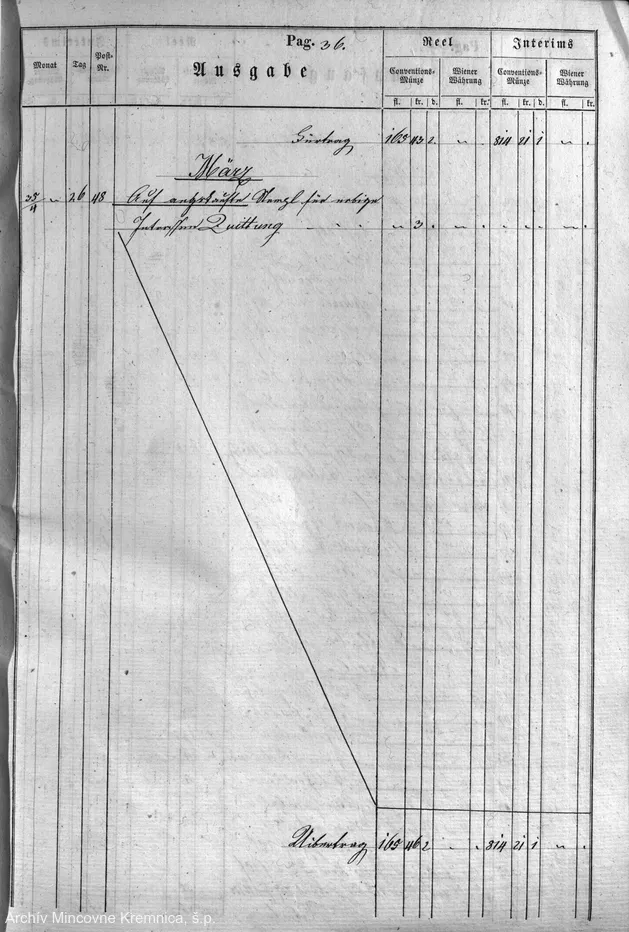 Pag. 36.
Ausgabe
Reel
Interims
Monat
Tag
Post-
Nr.
Conventions-
Münze
Wiener
Währung
Conventions-
Münze
Wiener
Währung
fl. kr. d. fl. kr. fl. kr. d. fl. kr.
165 43 2 " " 814 21 1 " "
März
" 26 48 Auf Stempl für
Interessen Quittung " 3
Uibertrag 165 46 2 " " 814 21 1 " "
Archív Mincovne Kremnica, š.p.